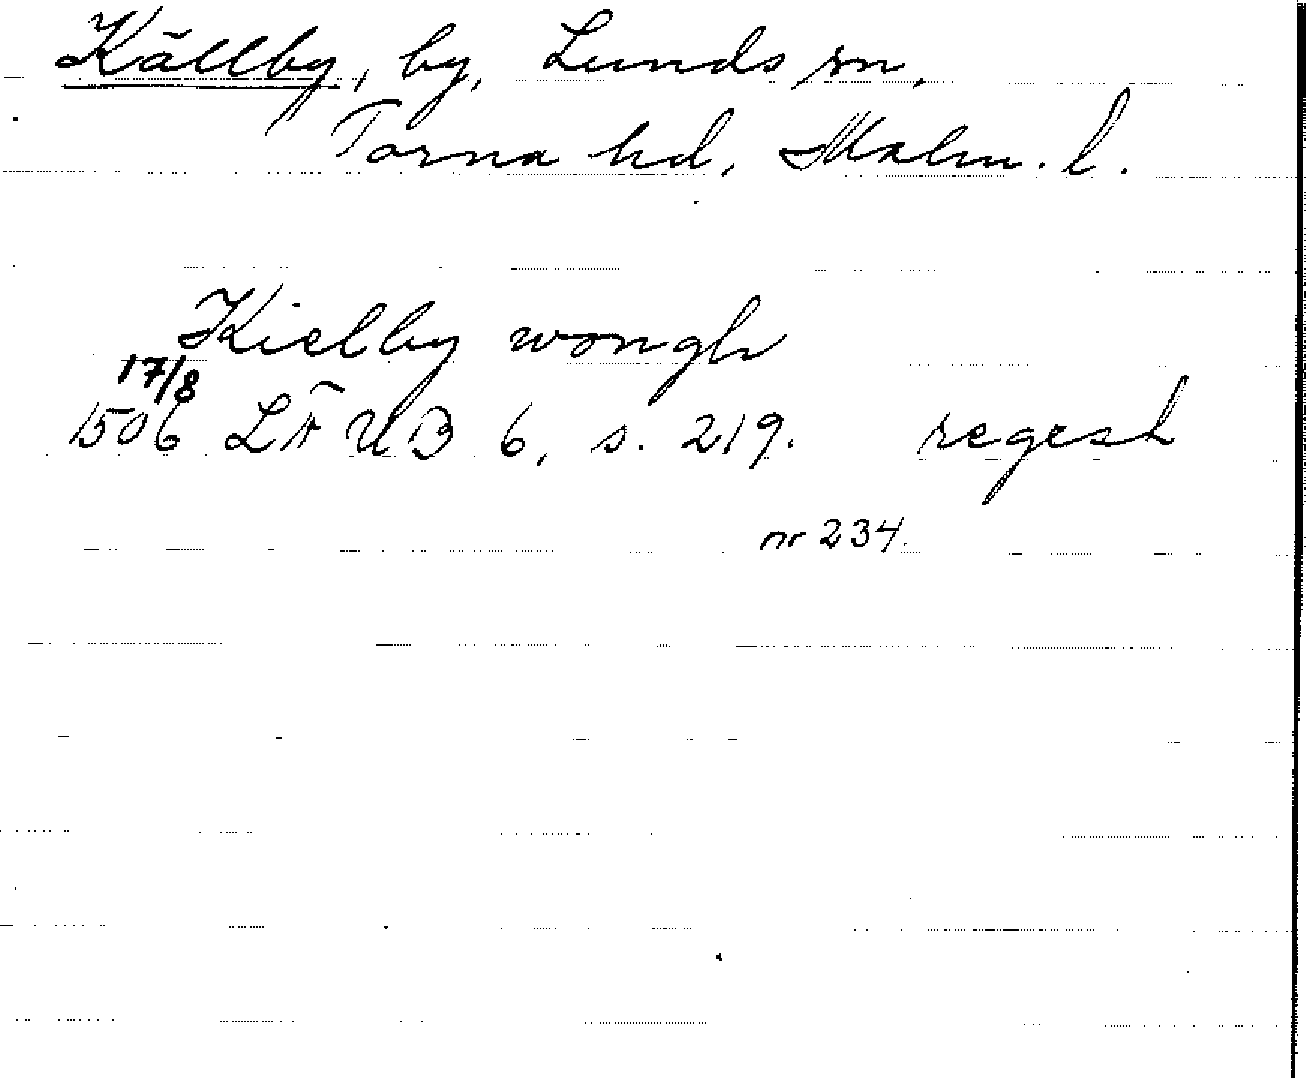 Källby, by, Lunds sn,
Torna hd, Malm. l.
Kielby wongh
17/8
1506 LÄUB 6, s. 219. regest
nr 234.